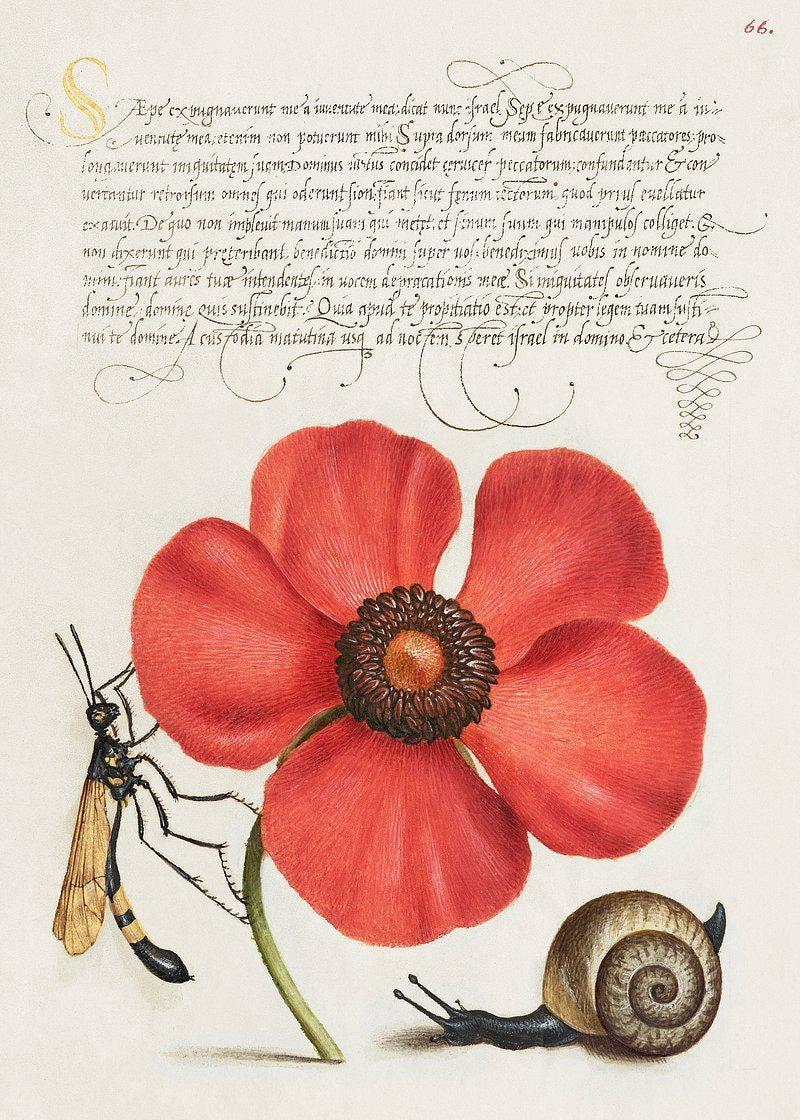 66.
Sæpe expugnaverunt me a iuventute mea: dicat nunc israel Sepe expugnaverunt me a iu-
ventute mea, etenim non potuerunt mihi Supra dorsum meum fabricaverunt peccatores: pro-
longaverunt iniquitatem suam. Dominus iustus concidet cervices peccatorum: confundantur & con
vertantur retrorsum omnes qui oderunt sion. fiant sicut fenum tectorum, quod prius evellatur
exaruit. De quo non impleuit manum suam qui metet. et sinum suum qui manipulos colliget. &
non dixerunt qui preteribant, benedictio domini super vos: benediximus vobis in nomine do-
mini. fiant aures tuæ intendentes, in vocem deprecationis meæ. Si iniquitates observaveris
domine, domine quis sustinebit? Quia apud te propitiatio est, et propter legem tuam susti-
nui te domine. A custodia matutina usq ad noctem, speret israel in domino & cetera